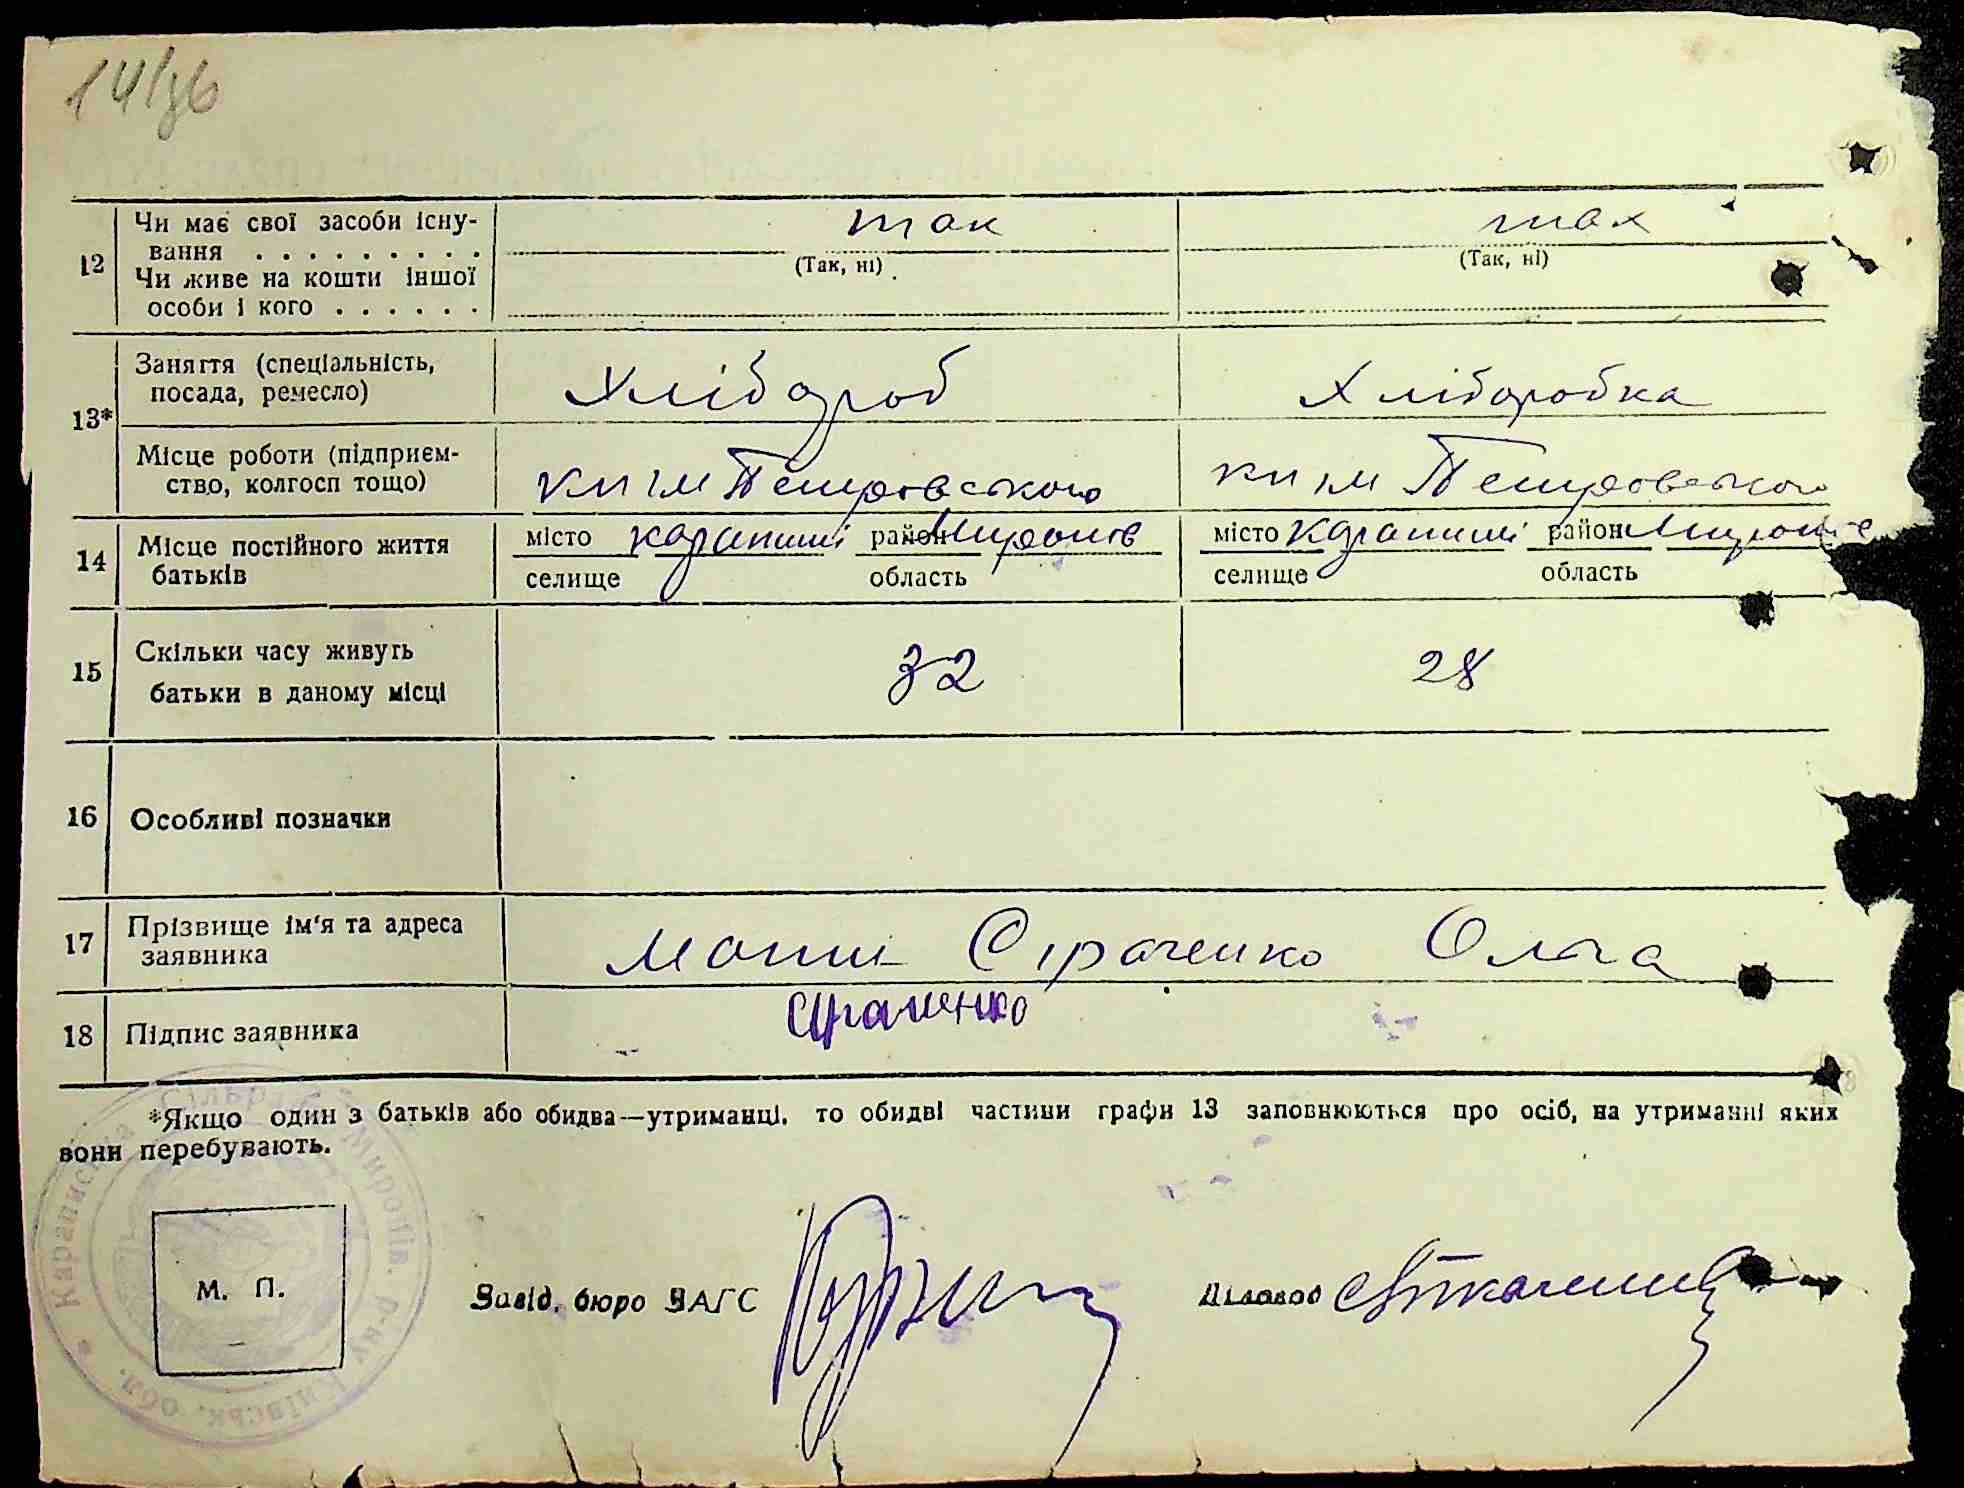 14/36
12 Чи має свої засоби існу- так так
вання . . . . . . . . . (Так, ні) (Так, ні)
Чи живе на кошти іншої
особи і кого . . . . . .
13* Заняття (спеціальність, Хлібороб Хліборобка
посада, ремесло)
Місце роботи (підприєм- кп ім Петровського кп ім Петровського
ство, колгосп тощо)
14 Місце постійного життя місто карапиші район Миронів місто Карапиші район
батьків селище область селище область
15 Скільки часу живуть 32 28
батьки в даному місці
16 Особливі позначки
17 Прізвище ім'я та адреса мати Сіраченко Ольга
заявника
18 Підпис заявника Сіраченко
*Якщо один з батьків або обидва—утриманці, то обидві частини графи 13 заповнюються про осіб, на утриманні яких
вони перебувають.
М. П. Завід. бюро ЗАГС Діловод
Караписька Сільрада Миронів. р-ну Київськ. обл.